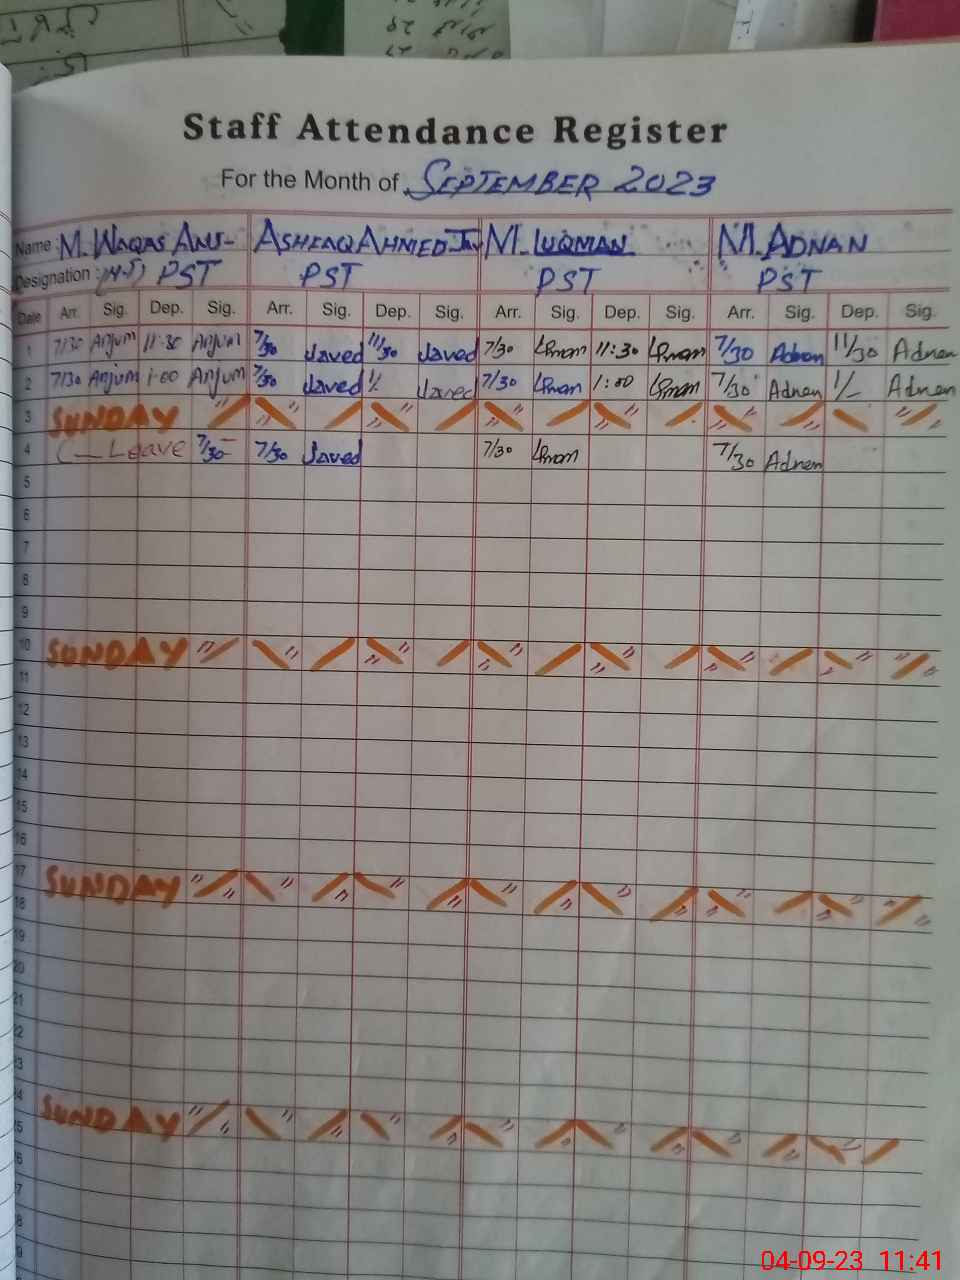 Staff Attendance Register
For the Month of SEPTEMBER 2023
Name : M. WAQAS ANJ- ASHFAQ AHMED M. LUQMAN M. ADNAN
Designation : PST PST PST PST
Date Arr. Sig. Dep. Sig. Arr. Sig. Dep. Sig. Arr. Sig. Dep. Sig. Arr. Sig. Dep. Sig.
1 7/30 Anjum 11:30 Anjum 7/30 Javed 11/30 Javed 7/30 Lqman 11:30 Lqman 7/30 Adnan 11/30 Adnan
2 7/30 Anjum 1:00 Anjum 7/30 Javed 1/ Javed 7/30 Lqman 1:00 Lqman 7/30 Adnan 1/- Adnan
3 SUNDAY
4 Leave 7/30 7/30 Javed 7/30 Lqman 7/30 Adnan
5
6
7
8
9
10 SUNDAY
11
12
13
14
15
16
17 SUNDAY
18
19
20
21
22
23
24 SUNDAY
25
26
27
28
29
04-09-23 11:41